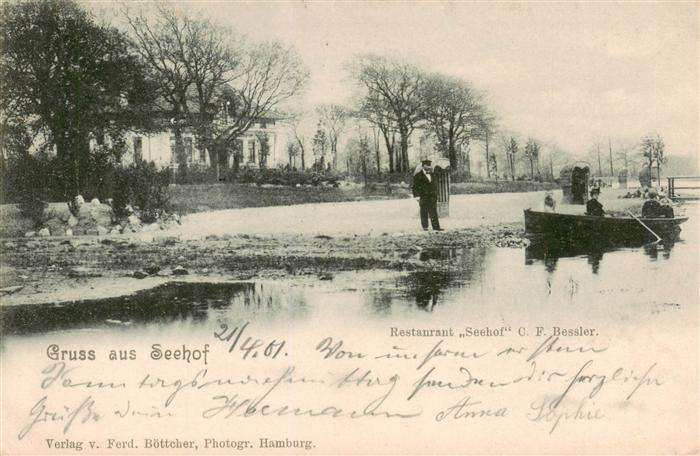 Restaurant „Seehof“ C. F. Bessler.
Gruss aus Seehof 21/4.01. Von unserem ersten
Sonntagsnachmittag senden dir herzliche
Grüße dein Hermann Anna Sophie
Verlag v. Ferd. Böttcher, Photogr. Hamburg.